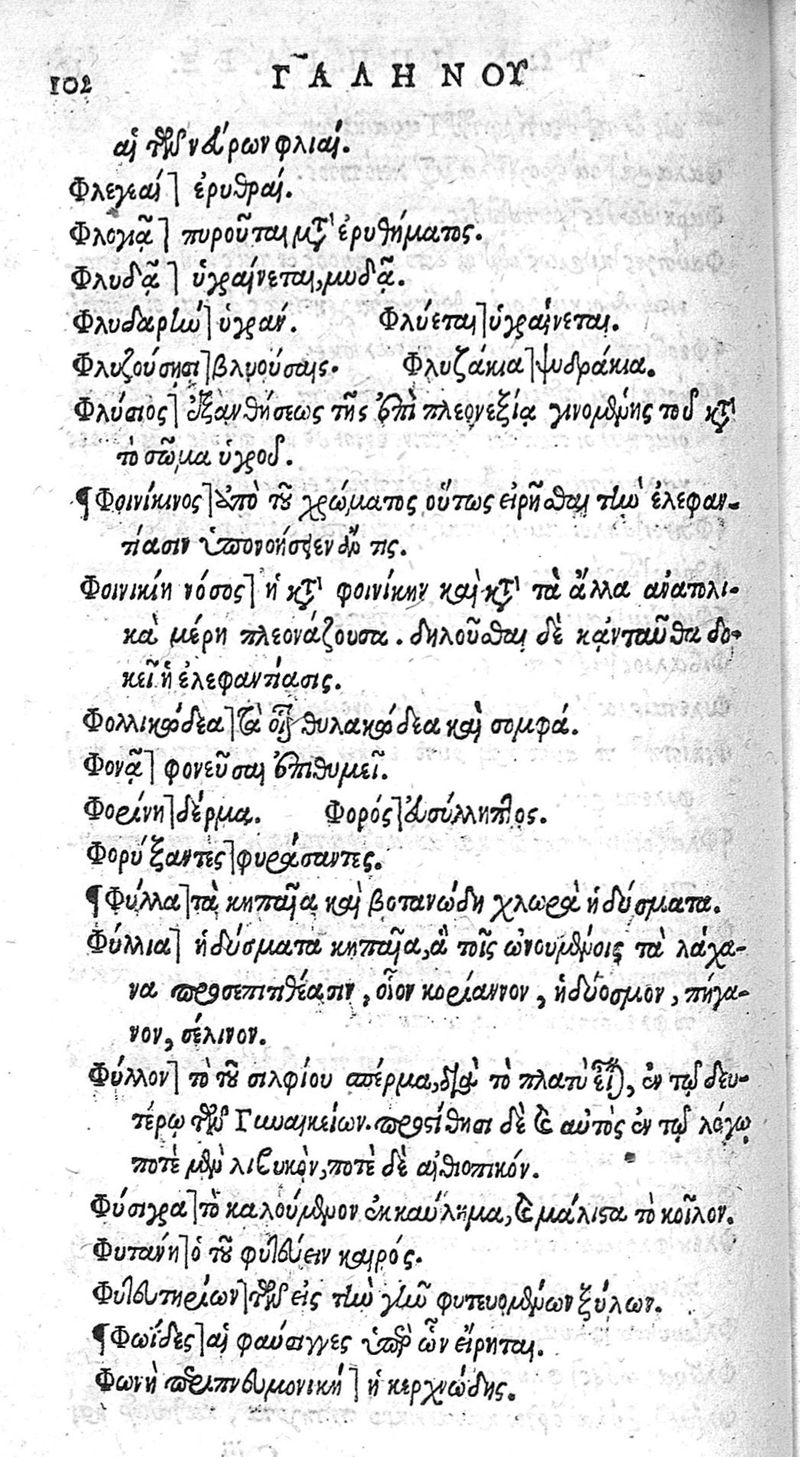 102 ΓΑΛΗΝΟΥ
αἱ τῶν θυρῶν φλιαί.
Φλεγιαί] ἐρυθραί.
Φλογιᾷ] πυροῦται μετ' ἐρυθήματος.
Φλυδᾷ] ὑγραίνεται, μυδᾷ.
Φλυδαρὴν] ὑγράν. Φλύεται] ὑγραίνεται.
Φλυζούσῃσι] βλυούσαις. Φλυζάκια] ψυδράκια.
Φλύσιος] ἐξανθήσεως τῆς ἐπὶ πλεονεξίᾳ γινομένης τοῦ κατὰ
τὸ σῶμα ὑγροῦ.
¶ Φοινίκινος] ἀπὸ τοῦ χρώματος οὕτως εἰρῆσθαι τὴν ἐλεφαν-
τίασιν ὑπονοήσειεν ἄν τις.
Φοινικίη νόσος] ἡ κατὰ φοινίκην καὶ κατὰ τὰ ἄλλα ἀνατολι-
κὰ μέρη πλεονάζουσα. δηλοῦσθαι δὲ κἀνταῦθα δο-
κεῖ ἡ ἐλεφαντίασις.
Φολλικώδεα] τὰ οἷον θυλακώδεα καὶ σομφά.
Φονᾷ] φονεῦσαι ἐπιθυμεῖ.
Φορίνη] δέρμα. Φορός] εὐσύλληπτος.
Φορύξαντες] φυράσαντες.
¶ Φύλλα] τὰ κηπαῖα καὶ βοτανώδη χλωρὰ ἡδύσματα.
Φύλλια] ἡδύσματα κηπαῖα, ἃ τοῖς ὠνουμένοις τὰ λάχα-
να προσεπιτιθέασιν, οἷον κορίαννον, ἡδύοσμον, πήγα-
νον, σέλινον.
Φύλλον] τὸ τοῦ σιλφίου σπέρμα, διὰ τὸ πλατὺ εἶναι, ἐν τῷ δευ-
τέρῳ τῶν Γυναικείων. προστίθησι δὲ καὶ αὐτὸς ἐν τῷ λόγῳ
ποτὲ μὲν λιβυκὸν, ποτὲ δὲ αἰθιοπικόν.
Φύσιγγα] τὸ καλούμενον ἐκκαύλημα, καὶ μάλιστα τὸ κοῖλον.
Φυτανή] ὁ τοῦ φυτεύειν καιρός.
Φυτευτηρίων] τῶν εἰς τὴν γῆν φυτευομένων ξύλων.
¶ Φωΐδες] αἱ φαύσιγγες ὑπὲρ ὧν εἴρηται.
Φωνὴ περιπνευμονική] ἡ κερχνώδης.